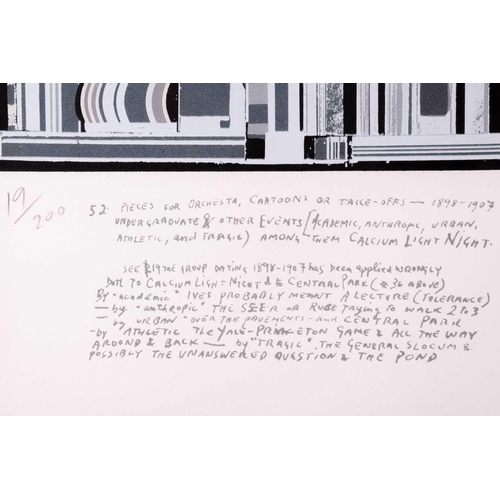 19/200
52. PIECES FOR ORCHESTA, CARTOONS OR TAKE-OFFS — 1898-1907
UNDERGRADUATE & OTHER EVENTS (ACADEMIC, ANTHROPIC, URBAN,
ATHLETIC, and TRAGIC) AMONG THEM CALCIUM LIGHT NIGHT.
SEE P.19 THE GROUP DATING 1898-1907 has been applied WRONGLY
both TO CALCIUM LIGHT-NIGHT & to CENTRAL PARK (#36 ABOVE)
By "academic" IVES PROBABLY MEANT A LECTURE (TOLERANCE)
— by "anthropic" THE SEER OR RUBE TRYING to WALK 2 to 3
— by URBAN "OVER THE PAVEMENTS - and CENTRAL PARK
- by "ATHLETIC THE YALE-PRINCETON GAME & ALL THE WAY
AROUND & BACK — by "TRAGIC". THE GENERAL SLOCUM &
POSSIBLY THE UNANSWERED QUESTION & THE POND